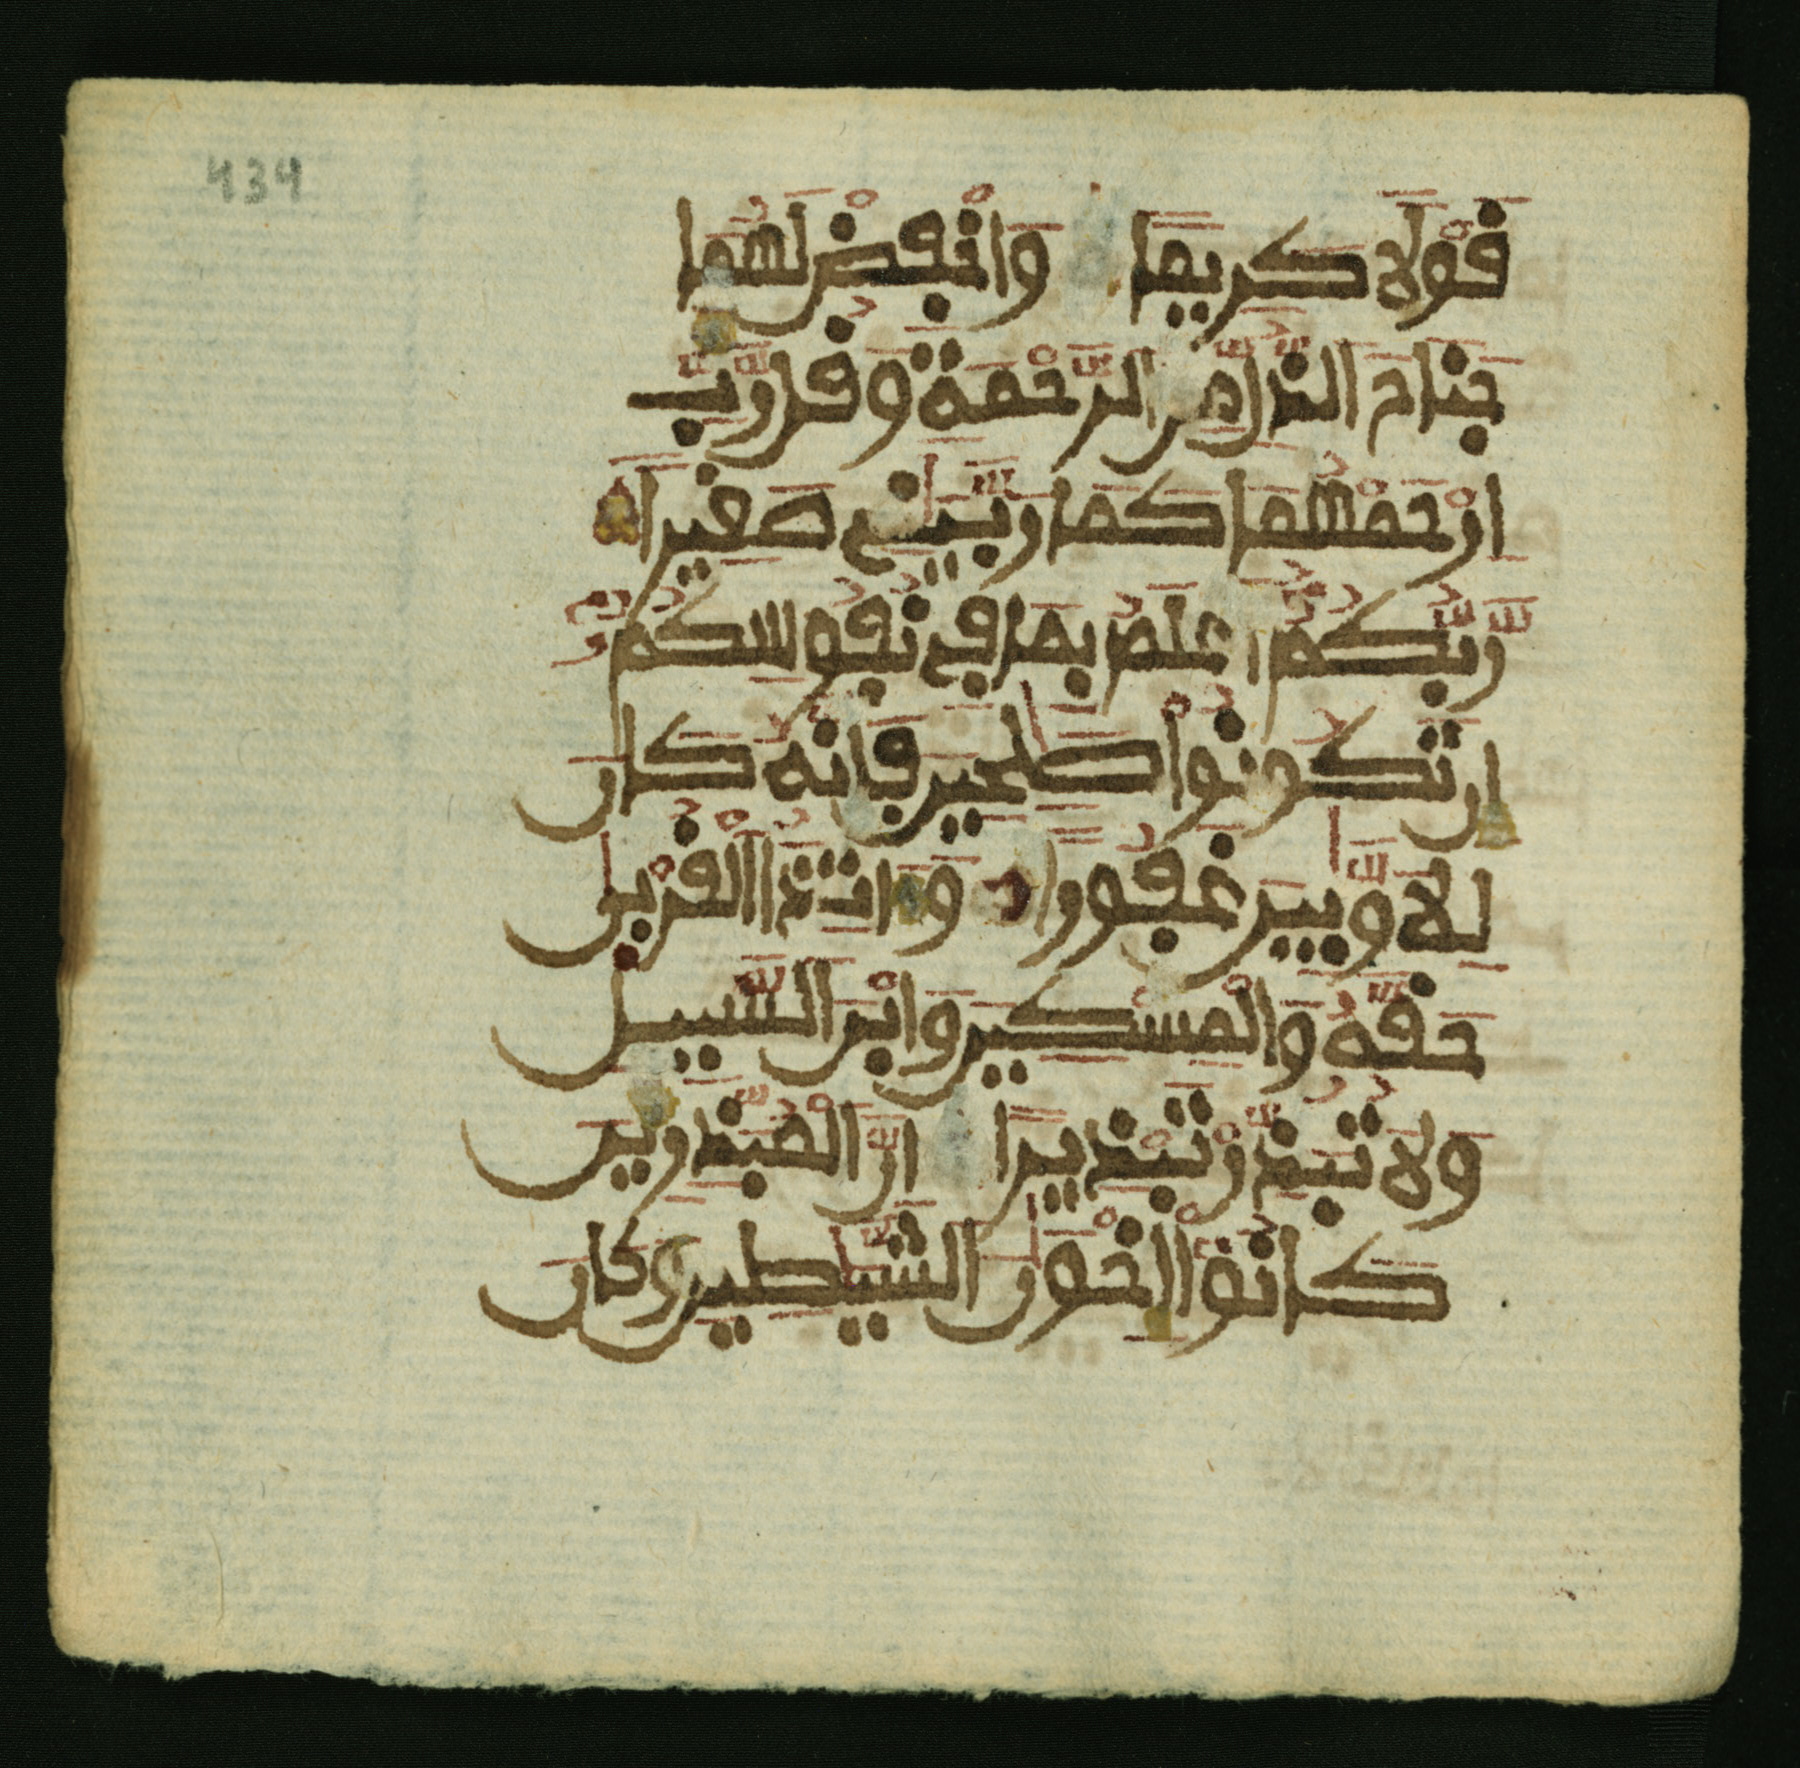 434
قولا كريما واخفض لهما
جناح الذل من الرحمة وقل رب
ارحمهما كما ربينے صغيرا
ربكم اعلم بما في نفوسكم
ان تكونوا صلحين فانه كان
للاوبين غفورا وءات ذا القربى
حقه والمسكين وابن السبيل
ولا تبذر تبذيرا ان المبذرين
كانوا اخون الشيطين وكان